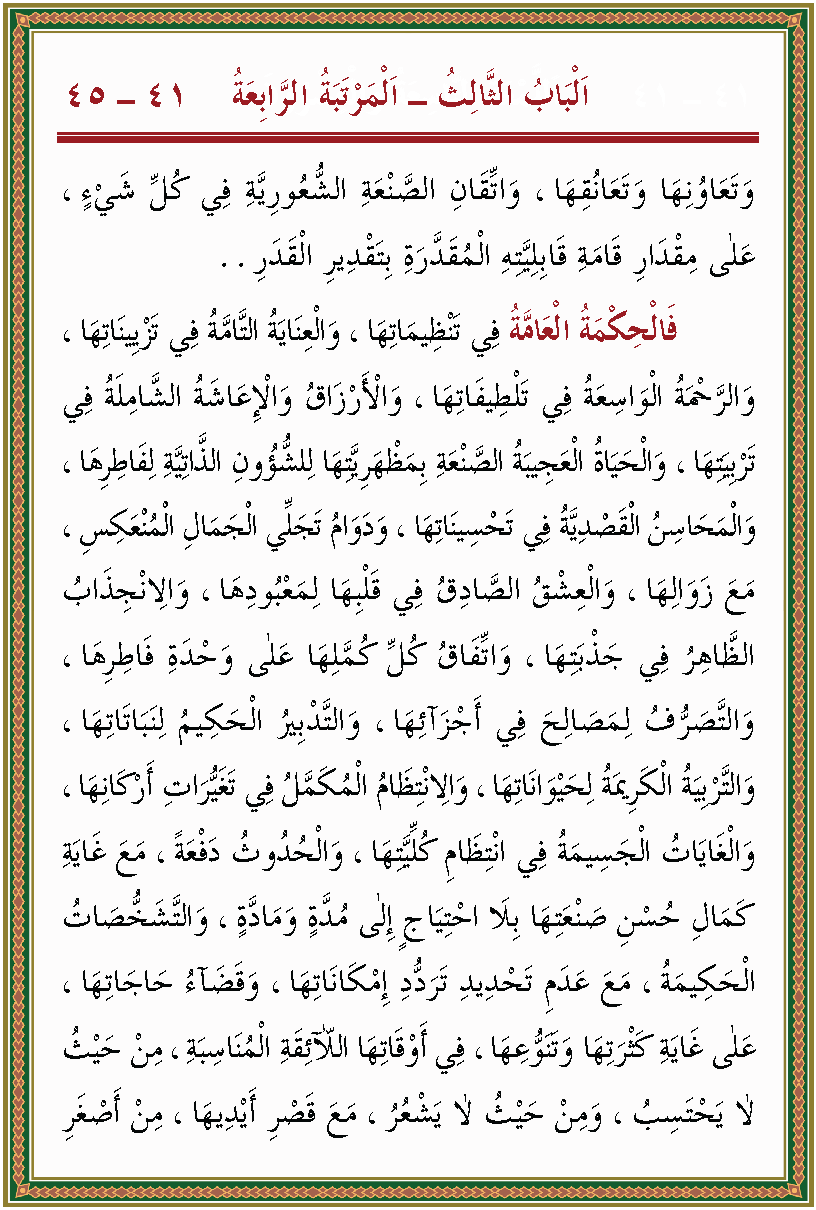 اَلْبَابُ الثَّالِثُ – اَلْمَرْتَبَةُ الرَّابِعَةُ ٤١ – ٤٥
وَتَعَاوُنِهَا وَتَعَانُقِهَا ، وَاتِّقَانِ الصَّنْعَةِ الشُّعُورِيَّةِ فِي كُلِّ شَيْءٍ ،
عَلٰى مِقْدَارِ قَامَةِ قَابِلِيَّتِهِ الْمُقَدَّرَةِ بِتَقْدِيرِ الْقَدَرِ . .
فَالْحِكْمَةُ الْعَامَّةُ فِي تَنْظِيمَاتِهَا ، وَالْعِنَايَةُ التَّامَّةُ فِي تَزْيِينَاتِهَا ،
وَالرَّحْمَةُ الْوَاسِعَةُ فِي تَلْطِيفَاتِهَا ، وَالْأَرْزَاقُ وَالْإِعَاشَةُ الشَّامِلَةُ فِي
تَرْبِيَتِهَا ، وَالْحَيَاةُ الْعَجِيبَةُ الصَّنْعَةِ بِمَظْهَرِيَّتِهَا لِلشُّؤُونِ الذَّاتِيَّةِ لِفَاطِرِهَا ،
وَالْمَحَاسِنُ الْقَصْدِيَّةُ فِي تَحْسِينَاتِهَا ، وَدَوَامُ تَجَلِّي الْجَمَالِ الْمُنْعَكِسِ ،
مَعَ زَوَالِهَا ، وَالْعِشْقُ الصَّادِقُ فِي قَلْبِهَا لِمَعْبُودِهَا ، وَالِانْجِذَابُ
الظَّاهِرُ فِي جَذْبَتِهَا ، وَاتِّفَاقُ كُلِّ كُمَّلِهَا عَلٰى وَحْدَةِ فَاطِرِهَا ،
وَالتَّصَرُّفُ لِمَصَالِحَ فِي أَجْزَآئِهَا ، وَالتَّدْبِيرُ الْحَكِيمُ لِنَبَاتَاتِهَا ،
وَالتَّرْبِيَةُ الْكَرِيمَةُ لِحَيْوَانَاتِهَا ، وَالِانْتِظَامُ الْمُكَمَّلُ فِي تَغَيُّرَاتِ أَرْكَانِهَا ،
وَالْغَايَاتُ الْجَسِيمَةُ فِي انْتِظَامِ كُلِّيَّتِهَا ، وَالْحُدُوثُ دَفْعَةً ، مَعَ غَايَةِ
كَمَالِ حُسْنِ صَنْعَتِهَا بِلَا احْتِيَاجٍ إِلٰى مُدَّةٍ وَمَادَّةٍ ، وَالتَّشَخُّصَاتُ
الْحَكِيمَةُ ، مَعَ عَدَمِ تَحْدِيدِ تَرَدُّدِ إِمْكَانَاتِهَا ، وَقَضَآءُ حَاجَاتِهَا ،
عَلٰى غَايَةِ كَثْرَتِهَا وَتَنَوُّعِهَا ، فِي أَوْقَاتِهَا اللَّآئِقَةِ الْمُنَاسِبَةِ ، مِنْ حَيْثُ
لَا يَحْتَسِبُ ، وَمِنْ حَيْثُ لَا يَشْعُرُ ، مَعَ قَصْرِ أَيْدِيهَا ، مِنْ أَصْغَرِ